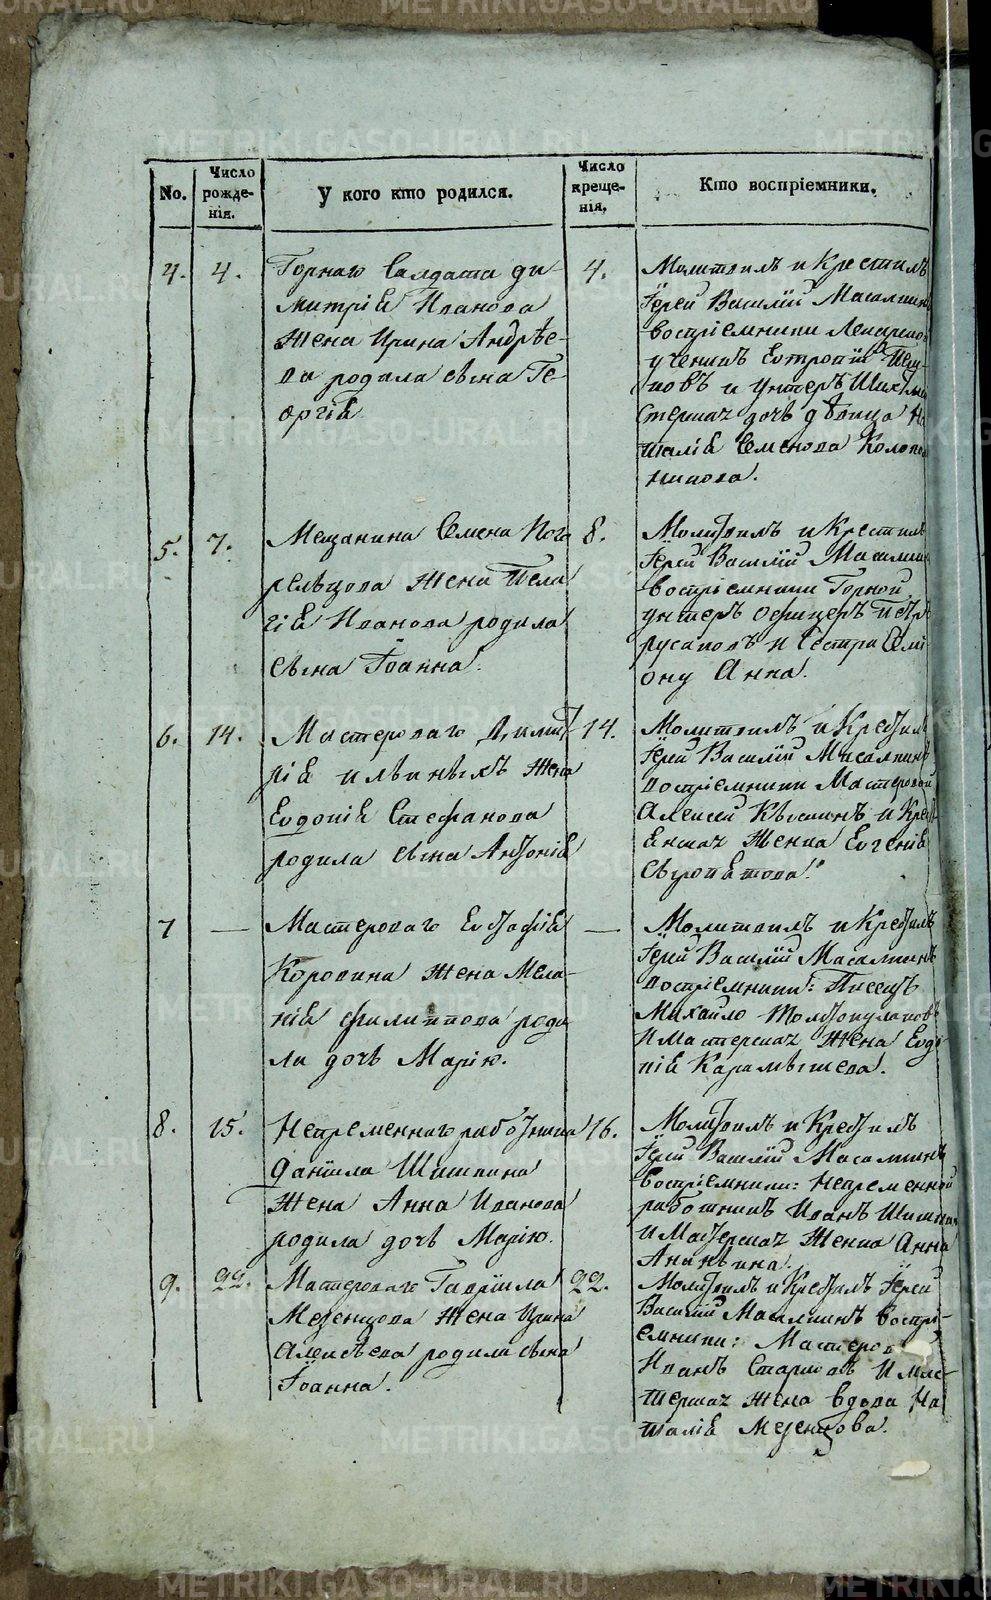 No.
Число рожде-нія.
У кого кто родился.
Число креще-нія.
Кто воспріемники.
4.
4.
Горнаго Салдата Ди-
митрія Иванова
жена Ирина Андрѣе-
ва родила сына Ге-
оргія
4.
Молитвилъ и Крестилъ
Іерей Василій Масалкинъ
воспріемники
ученикъ Евтропій
и унтеръ Шихтмей
стерская дочь дѣвица На
талія Семенова
5.
7.
Мещанина Семена Пого
рельцова жена Пела
гія Иванова родила
сына Іоанна.
8.
Молитвилъ и Крестилъ
Іерей Василій Масалкинъ
воспріемники Горной
унтеръ офицеръ Петръ
Русаковъ и сестра Семі
ону Анна.
6.
14.
Мастероваго Димит
рія жена
Евдокія Стефанова
родила сына Антонія
14.
Молитвилъ и Крестилъ
Іерей Василій Масалкинъ
воспріемники Мастеровой
Алексей и Крест
енская женка Евгенія
7
—
Мастероваго Евстафія
Коровина жена Мела-
нія Филиппова роди
ла дочь Марію.
—
Молитвилъ и Крестилъ
Іерей Василій Масалкинъ
воспріемники: Писецъ
Михайло Толстоулаковъ
и мастерская жена Евдо
кія Карамышева.
8.
15.
Непременнаго работника
Даніила Шишкина
жена Анна Иванова
родила дочь Марію.
16.
Молитвилъ и Крестилъ
Іерей Василій Масалкинъ
воспріемники: Непременной
работникъ Иванъ Шишкин
и Мастерская женка Анна
Ананьина.
9.
22.
Мастероваго Гавріила
Мезенцова жена Ирина
Алексѣева родила сына
Іоанна.
22.
Молитвилъ и Крестилъ Іерей
Василій Масалкинъ воспрі-
емники: Мастеров
Иванъ Старковъ и Мас-
терская жена вдова На
талія Мезенцова.
METRIKI.GASO-URAL.RU